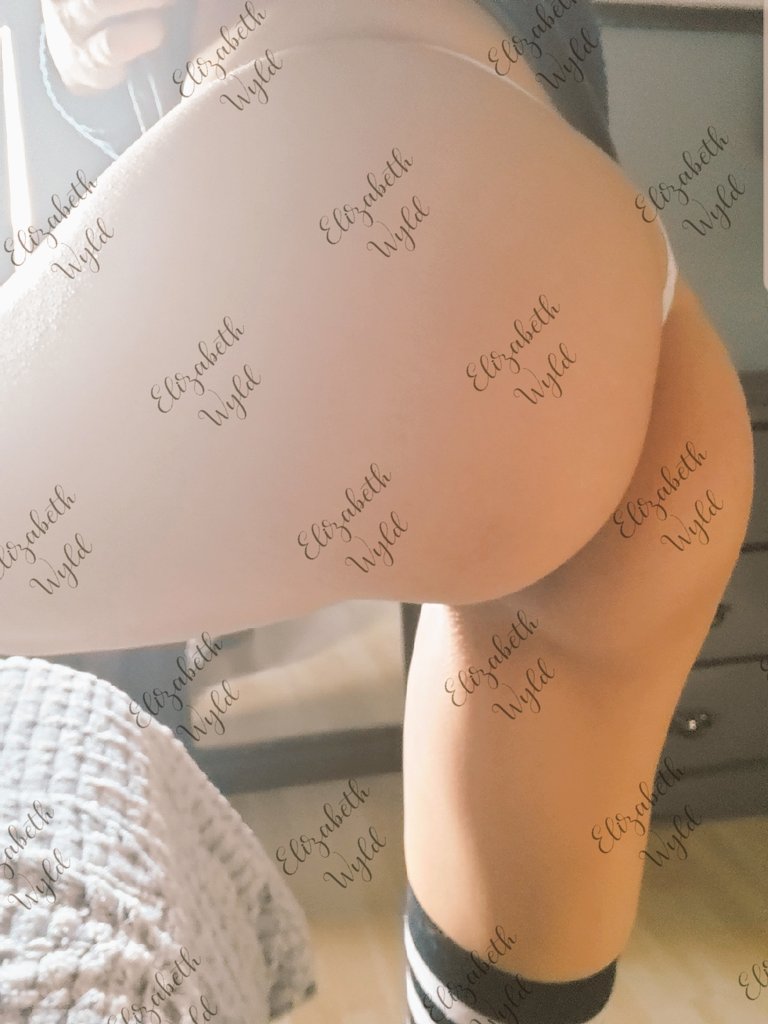 Elizabeth
Wyld
Elizabeth
Wyld
Elizabeth
Wyld
Elizabeth
Wyld
Elizabeth
Wyld
Elizabeth
Wyld
Elizabeth
Wyld
Elizabeth
Wyld
Elizabeth
Wyld
Elizabeth
Wyld
Elizabeth
Wyld
Elizabeth
Wyld
Elizabeth
Wyld
Elizabeth
Wyld
Wyld
Elizabeth
Elizabeth
Wyld